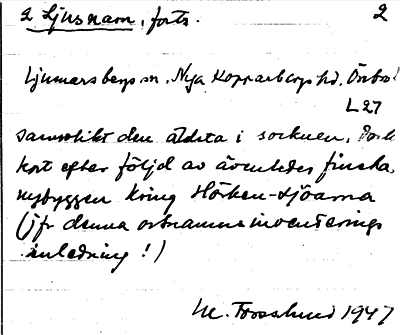 2 Ljusnam, forts. 2
Ljusnarsbergs sn. Nya Kopparbergs hd. Örebro l
L 27
sannolikt den äldsta i socknen,
kort efter följd av ävenledes finska
nybyggen kring Hörken-sjöarna
(jfr denna ortnamnsinventerings
inledning!)
M. Forsslund 1947